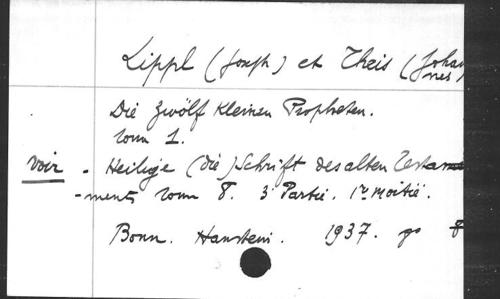 Lippl (Joseph) et Theis (Johan
nes)
Die zwölf Kleinen Propheten.
Tom 1.
voir - Heilige (die) Schrift des alten Testame
-ments Tom 8. 3e Partie. 1re Moitié.
Bonn. Hanstein. 1937. gr 8